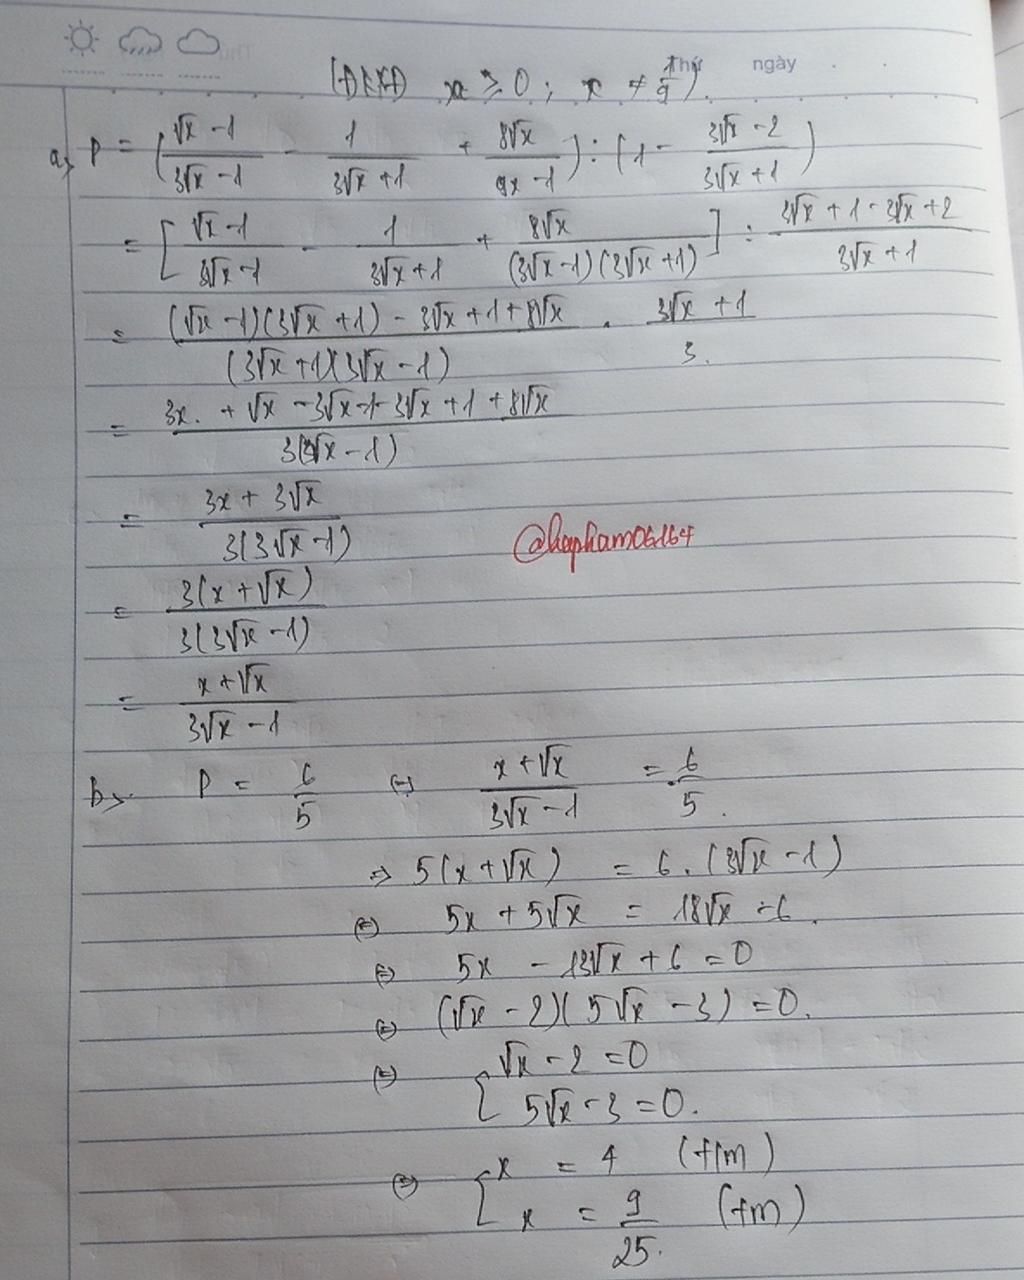 Thứ ngày
(ĐKXĐ x ≥ 0 ; x ≠ 1/9).
a, P = ( (√x - 1)/(3√x - 1) - 1/(3√x + 1) + 8√x/(9x - 1) ) : ( 1 - (3√x - 2)/(3√x + 1) )
= [ (√x - 1)/(3√x - 1) - 1/(3√x + 1) + 8√x/((3√x - 1)(3√x + 1)) ] : (3√x + 1 - 3√x + 2)/(3√x + 1)
= ((√x - 1)(3√x + 1) - 3√x + 1 + 8√x)/((3√x + 1)(3√x - 1)) . (3√x + 1)/3.
= (3x. + √x - 3√x - 1 - 3√x + 1 + 8√x)/(3(3√x - 1))
= (3x + 3√x)/(3(3√x - 1))
@hapham06164
= 3(x + √x)/(3(3√x - 1))
= (x + √x)/(3√x - 1)
b, P = 6/5 (=) (x + √x)/(3√x - 1) = 6/5.
=> 5(x + √x) = 6. (3√x - 1)
(=) 5x + 5√x = 18√x - 6.
(=) 5x - 13√x + 6 = 0
(=) (√x - 2)(5√x - 3) = 0.
(=) [ √x - 2 = 0
5√x - 3 = 0.
(=) [ x = 4 (t/m)
x = 9/25. (tm)